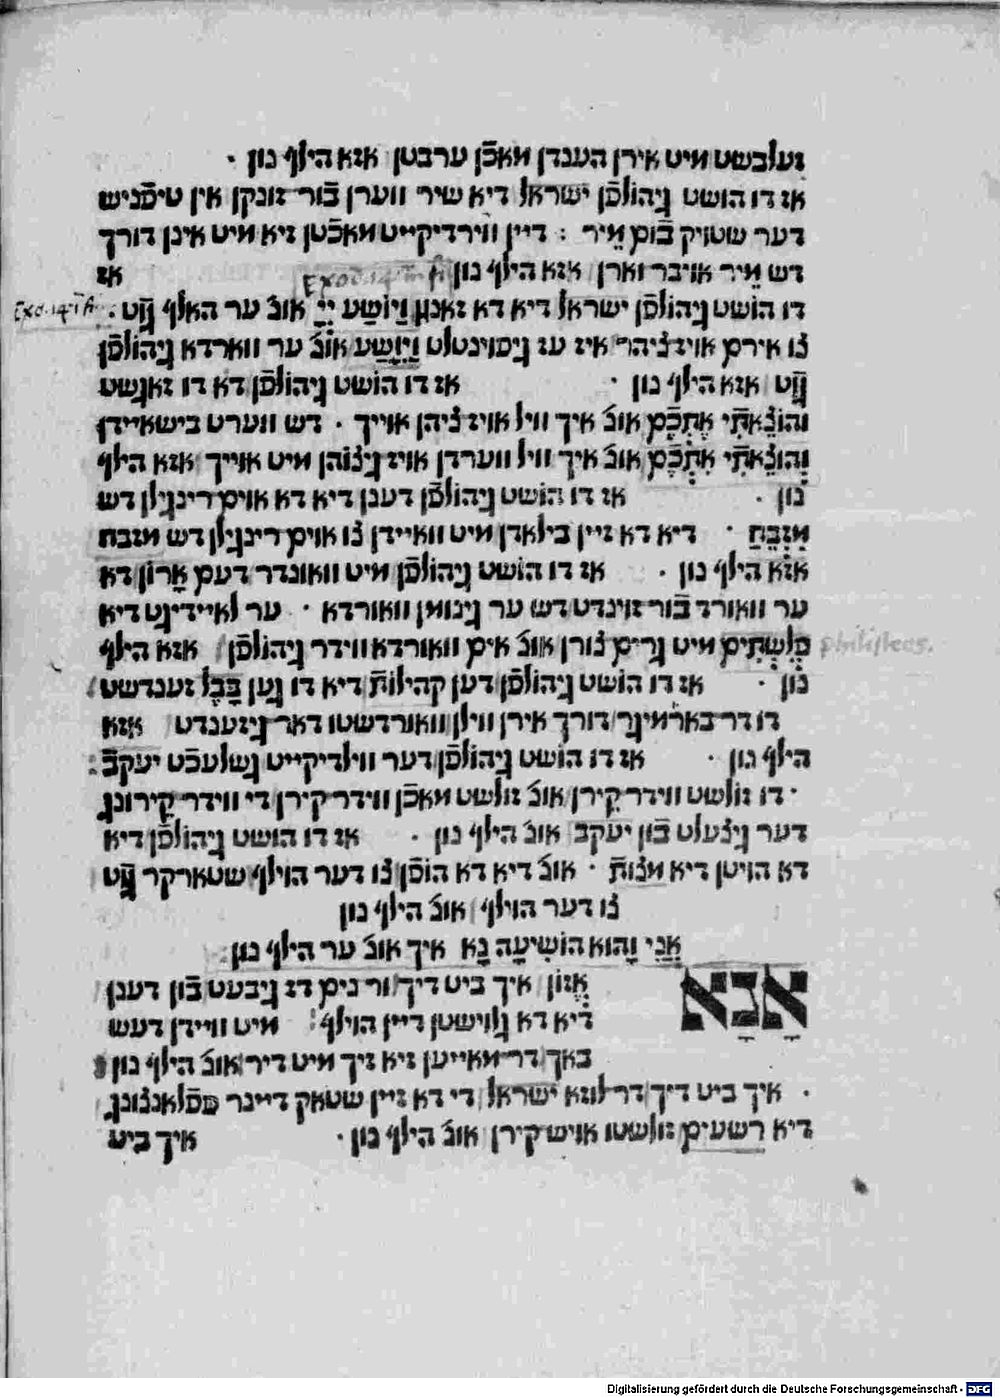 זעלבשט מיט אירן הענדן מאכֿן ערבטן אזא הילף נון ·
אז דו הושט גיהולפֿן ישראל דיא שיר ווערן בֿור זונקן אין טיפֿניש
דער שטויק בֿום מֵיר : דיין ווירדיקייט מאכֿטן זיא מיט אינן דורך
דש מֵיר אויבר וארן אזא הילף נון Exo. 14 אז
Exo. 14 דו הושט גיהולפֿן ישראל דיא דא זאנגן וַיּוֹשַע יְיָ אונ' ער האלף גֿוֿט .
צו אירם אויז ציהר איז עז גיטוינטלט וַיִּוָּשַע אונ' ער ווארדא גיהולפֿן
גֿוֿט אזא הילף נון · אז דו הושט גיהולפֿן דא דו זאגשט
והוצֵאתִי אֶתְכֶם אונ' איך וויל אויז ציהן אוייך · דש ווערט בישאיידן
וְהוּצֵאתִי אִתְּכֶם אונ' איך וויל ווערדן אויז גיצוהן מיט אוייך אזא הילף
נון · אז דו הושט גיהולפֿן דענן דיא דא אוים רינגילן דש
מִזְבֵּחַ · דיא דא זיין בילאדן מיט וואיידן צו אוים רינגילן דש מזבח
אזא הילף נון · אז דו הושט גיהולפֿן מיט וואונדר דעם אָרוֹן דא
ער וואורד בֿור זוינדט דש ער גינומן וואורדא · ער לאיידיגט דיא
פְלִשְתִּים מיט גרים צורן אונ' אים וואורדא ווידר גיהולפֿן אזא הילף philisteos.
נון · אז דו הושט גיהולפֿן דען קהילות דיא דו גען בָּבֶל זענדשט
דו דר בארמיגר דורך אירן ווילן וואורדשטו דאר גיזענדט אזא
הילף נון · אז דו הושט גיהולפֿן דער ווילדיקייט גשלעכֿט יעקב :
· דו זולשט ווידר קירן אונ' זולשט מאכֿן ווידר קירן די ווידר קירונג
דער גיצעלט בֿון יעקב אונ' הילף נון · אז דו הושט גיהולפֿן דיא
דא הויטן דיא מצות · אונ' דיא דא הופֿן צו דער הוילף שטארקר גֿוֿט
צו דער הוילף אונ' הילף נון
אֲנִי וָהוּא הוֹשִיעָה נָא איך אונ' ער הילף נון :
אָנָא אֶזוֹן איך ביט דיך ור נים דז גיבעט בֿון דענן
דיא דא גלוישטן דיין הוילף : מיט וויידן דעש
באך דר מאייען זיא זיך מיט דיר אונ' הילף נון
· איך ביט דיך דר לוזא ישראל די דא זיין שטאק דיינר פפֿלאנצונג
דיא רשעים זולשטו אויש קירן אונ' הילף נון · איך ביט
Digitalisierung gefördert durch die Deutsche Forschungsgemeinschaft - DFG